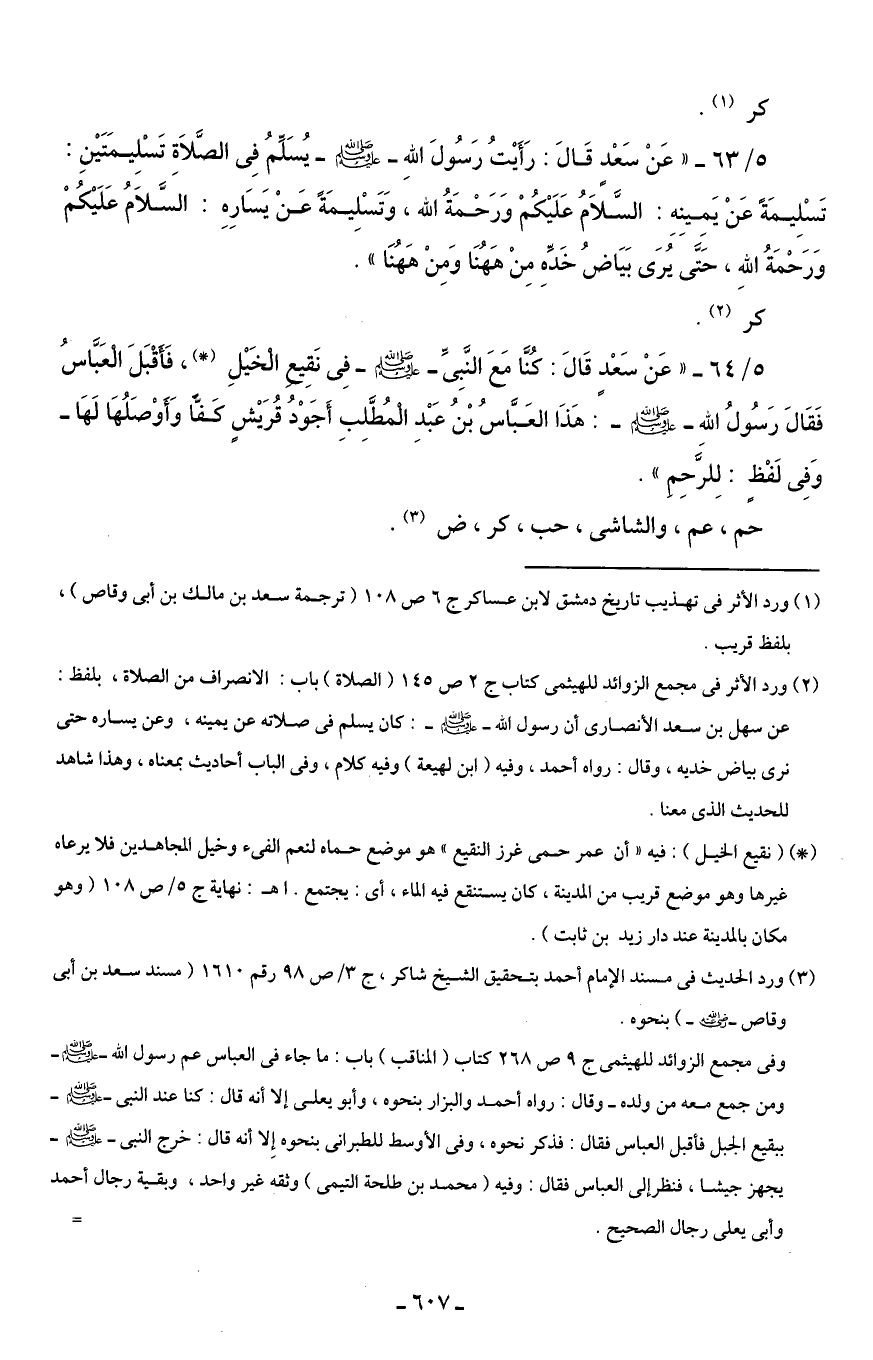 كر (١) .
٥/ ٦٣ ـ « عَنْ سَعْدٍ قَالَ : رَأَيْتُ رَسُولَ اللهِ ـ ﷺ ـ يُسَلِّمُ فِى الصَّلَاةِ تَسْلِيمَتَيْنِ :
تَسْلِيمَةً عَنْ يَمِينِهِ : السَّلَامُ عَلَيْكُمْ وَرَحْمَةُ الله ، وَتَسْلِيمَةً عَنْ يَسَارِهِ : السَّلَامُ عَلَيْكُمْ
وَرَحْمَةُ اللهِ ، حَتَّى يُرَى بَيَاضُ خَدِّهِ مِنْ هَهُنَا وَمِنْ هَهُنَا » .
كر (٢) .
٥/ ٦٤ ـ « عَنْ سَعْدٍ قَالَ : كُنَّا مَعَ النَّبِىِّ ـ ﷺ ـ فِى نَقِيعِ الْخَيْلِ (*) ، فَأَقْبَلَ الْعَبَّاسُ
فَقَالَ رَسُولُ اللهِ ـ ﷺ ـ : هَذَا العَبَّاسُ بْنُ عَبْدِ الْمُطَّلِبِ أَجْوَدُ قُرَيْشٍ كَفّاً وَأَوْصَلُهَا لَهَا ـ
وَفِى لَفْظٍ : لِلرَّحِمِ » .
حم ، عم ، والشاشى ، حب ، كر ، ض (٣) .
(١) ورد الأثر فى تهذيب تاريخ دمشق لابن عساكر ج ٦ ص ١٠٨ ( ترجمة سعد بن مالك بن أبى وقاص ) ،
بلفظ قريب .
(٢) ورد الأثر فى مجمع الزوائد للهيثمى كتاب ج ٢ ص ١٤٥ ( الصلاة ) باب : الانصراف من الصلاة ، بلفظ :
عن سهل بن سعد الأنصارى أن رسول الله ـ ﷺ ـ : كان يسلم فى صلاته عن يمينه ، وعن يساره حتى
نرى بياض خديه ، وقال : رواه أحمد ، وفيه ( ابن لهيعة ) وفيه كلام ، وفى الباب أحاديث بمعناه ، وهذا شاهد
للحديث الذى معنا .
(*) ( نقيع الخيل ) : فيه « أن عمر حمى غرز النقيع » هو موضع حماه لنعم الفىء وخيل المجاهدين فلا يرعاه
غيرها وهو موضع قريب من المدينة ، كان يستنقع فيه الماء ، أى : يجتمع . ا هـ : نهاية ج ٥/ ص ١٠٨ ( وهو
مكان بالمدينة عند دار زيد بن ثابت ) .
(٣) ورد الحديث فى مسند الإمام أحمد بتحقيق الشيخ شاكر ، ج ٣/ ص ٩٨ رقم ١٦١٠ ( مسند سعد بن أبى
وقاص ـ رضي الله عنه ـ ) بنحوه .
وفى مجمع الزوائد للهيثمى ج ٩ ص ٢٦٨ كتاب ( المناقب ) باب : ما جاء فى العباس عم رسول الله ـ ﷺ ـ
ومن جمع معه من ولده ـ وقال : رواه أحمد والبزار بنحوه ، وأبو يعلى إلا أنه قال : كنا عند النبى ـ ﷺ ـ
ببقيع الجبل فأقبل العباس فقال : فذكر نحوه ، وفى الأوسط للطبرانى بنحوه إلا أنه قال : خرج النبى ـ ﷺ ـ
يجهز جيشا ، فنظر إلى العباس فقال : وفيه ( محمد بن طلحة التيمى ) وثقه غير واحد ، وبقية رجال أحمد
وأبى يعلى رجال الصحيح .
=
ـ ٦٠٧ ـ